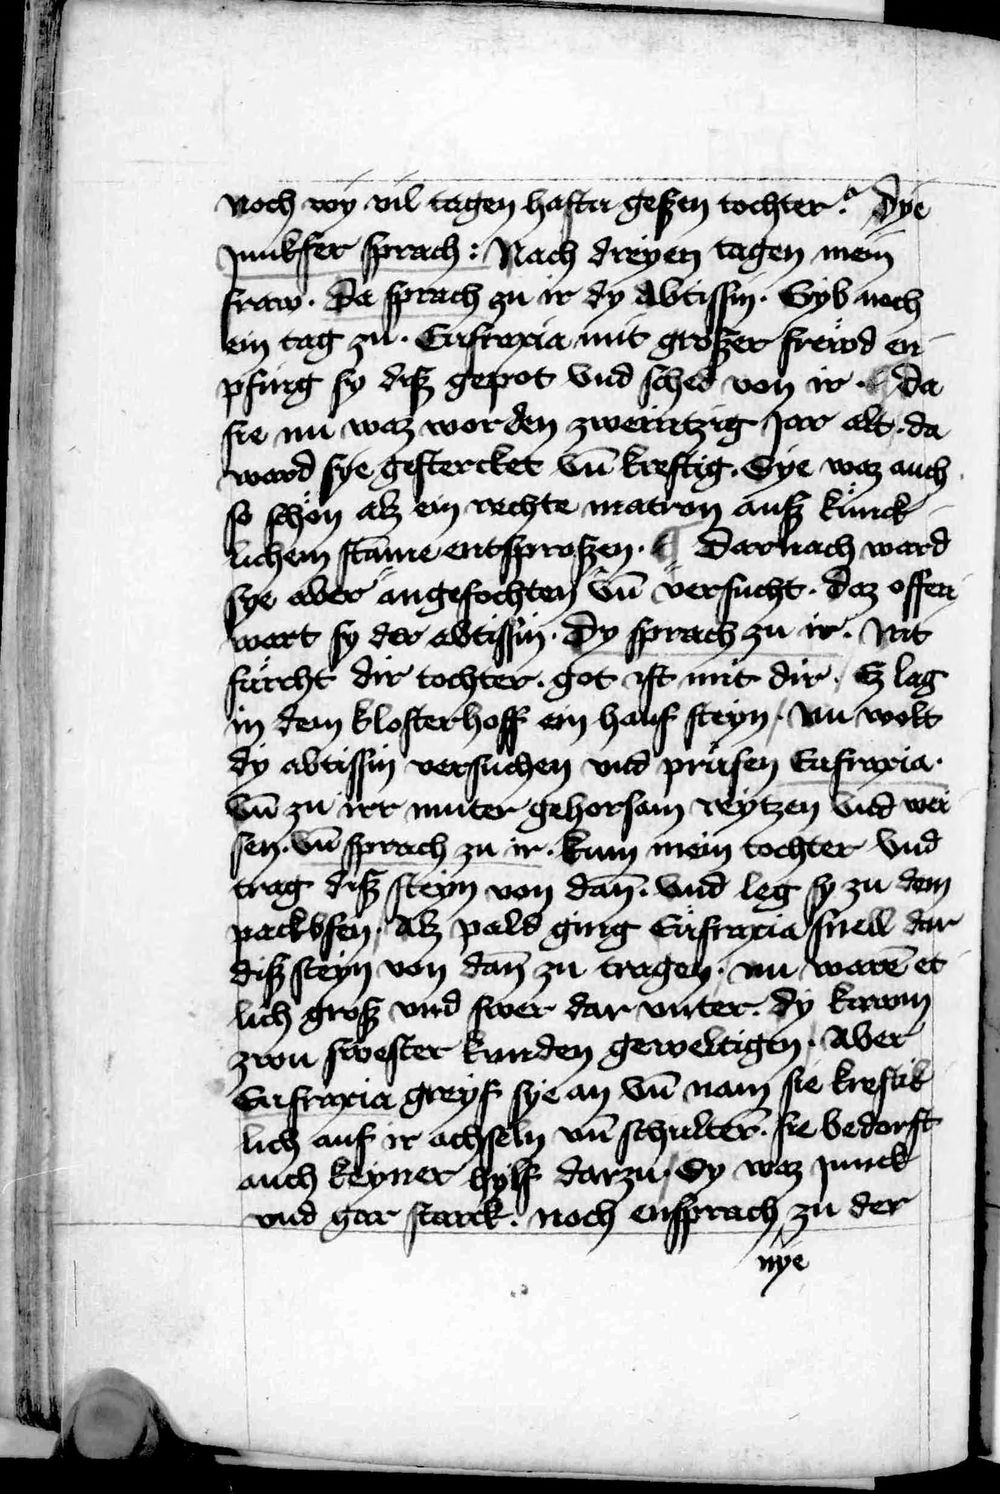 noch wy vil tagen hastu geßen tochter? Dye
junkfer sprach: Nach dreyen tagen mein
fraw. Da sprach zu ir dy Abtissin. Gyb noch
ein tag zu. Eufraxia mit großer frewd en
pfing sy diß gepot vnd sched von ir. ¶ Da
sie nu waz worden zweintzig Jar alt. da
ward sye gestercket vn̄ kreftig. Sye waz auch
so schön alz ein rechte matron auß künck
lichem stam̄e entsproßen. ¶ Darnach ward
sye aber angefochten vn̄ versucht. daz offen
wart sy der abtissin. Dy sprach zu ir. Nit
fürcht dir tochter. got ist mit dir. Ez lag
in dem klosterhoff ein hauf steyn. Nu wolt
dy abtissin versuchen vnd prüfen Eufraxia.
vn̄ zu irr muter gehorsam reytzen vnd wei
sen. vn̄ sprach zu ir. kum mein tochter vnd
trag diß steyn von dan̄. vnd leg sy zu dem
packofen. Alz pald ging Eufraxia snell dar
diß steyn von dan̄ zu tragen. nu warē et
lich groß vnd swer dar vnter. dy kawm
zwu swester kunden geweltigen. Aber
Eufraxia greyf sye an vn̄ nam sie kreftik
lich auf ir achseln vn̄ schulter. sie bedorft
auch keyner hylf darzu. Sy waz junck
vnd gar starck. noch ensprach zu der
nye